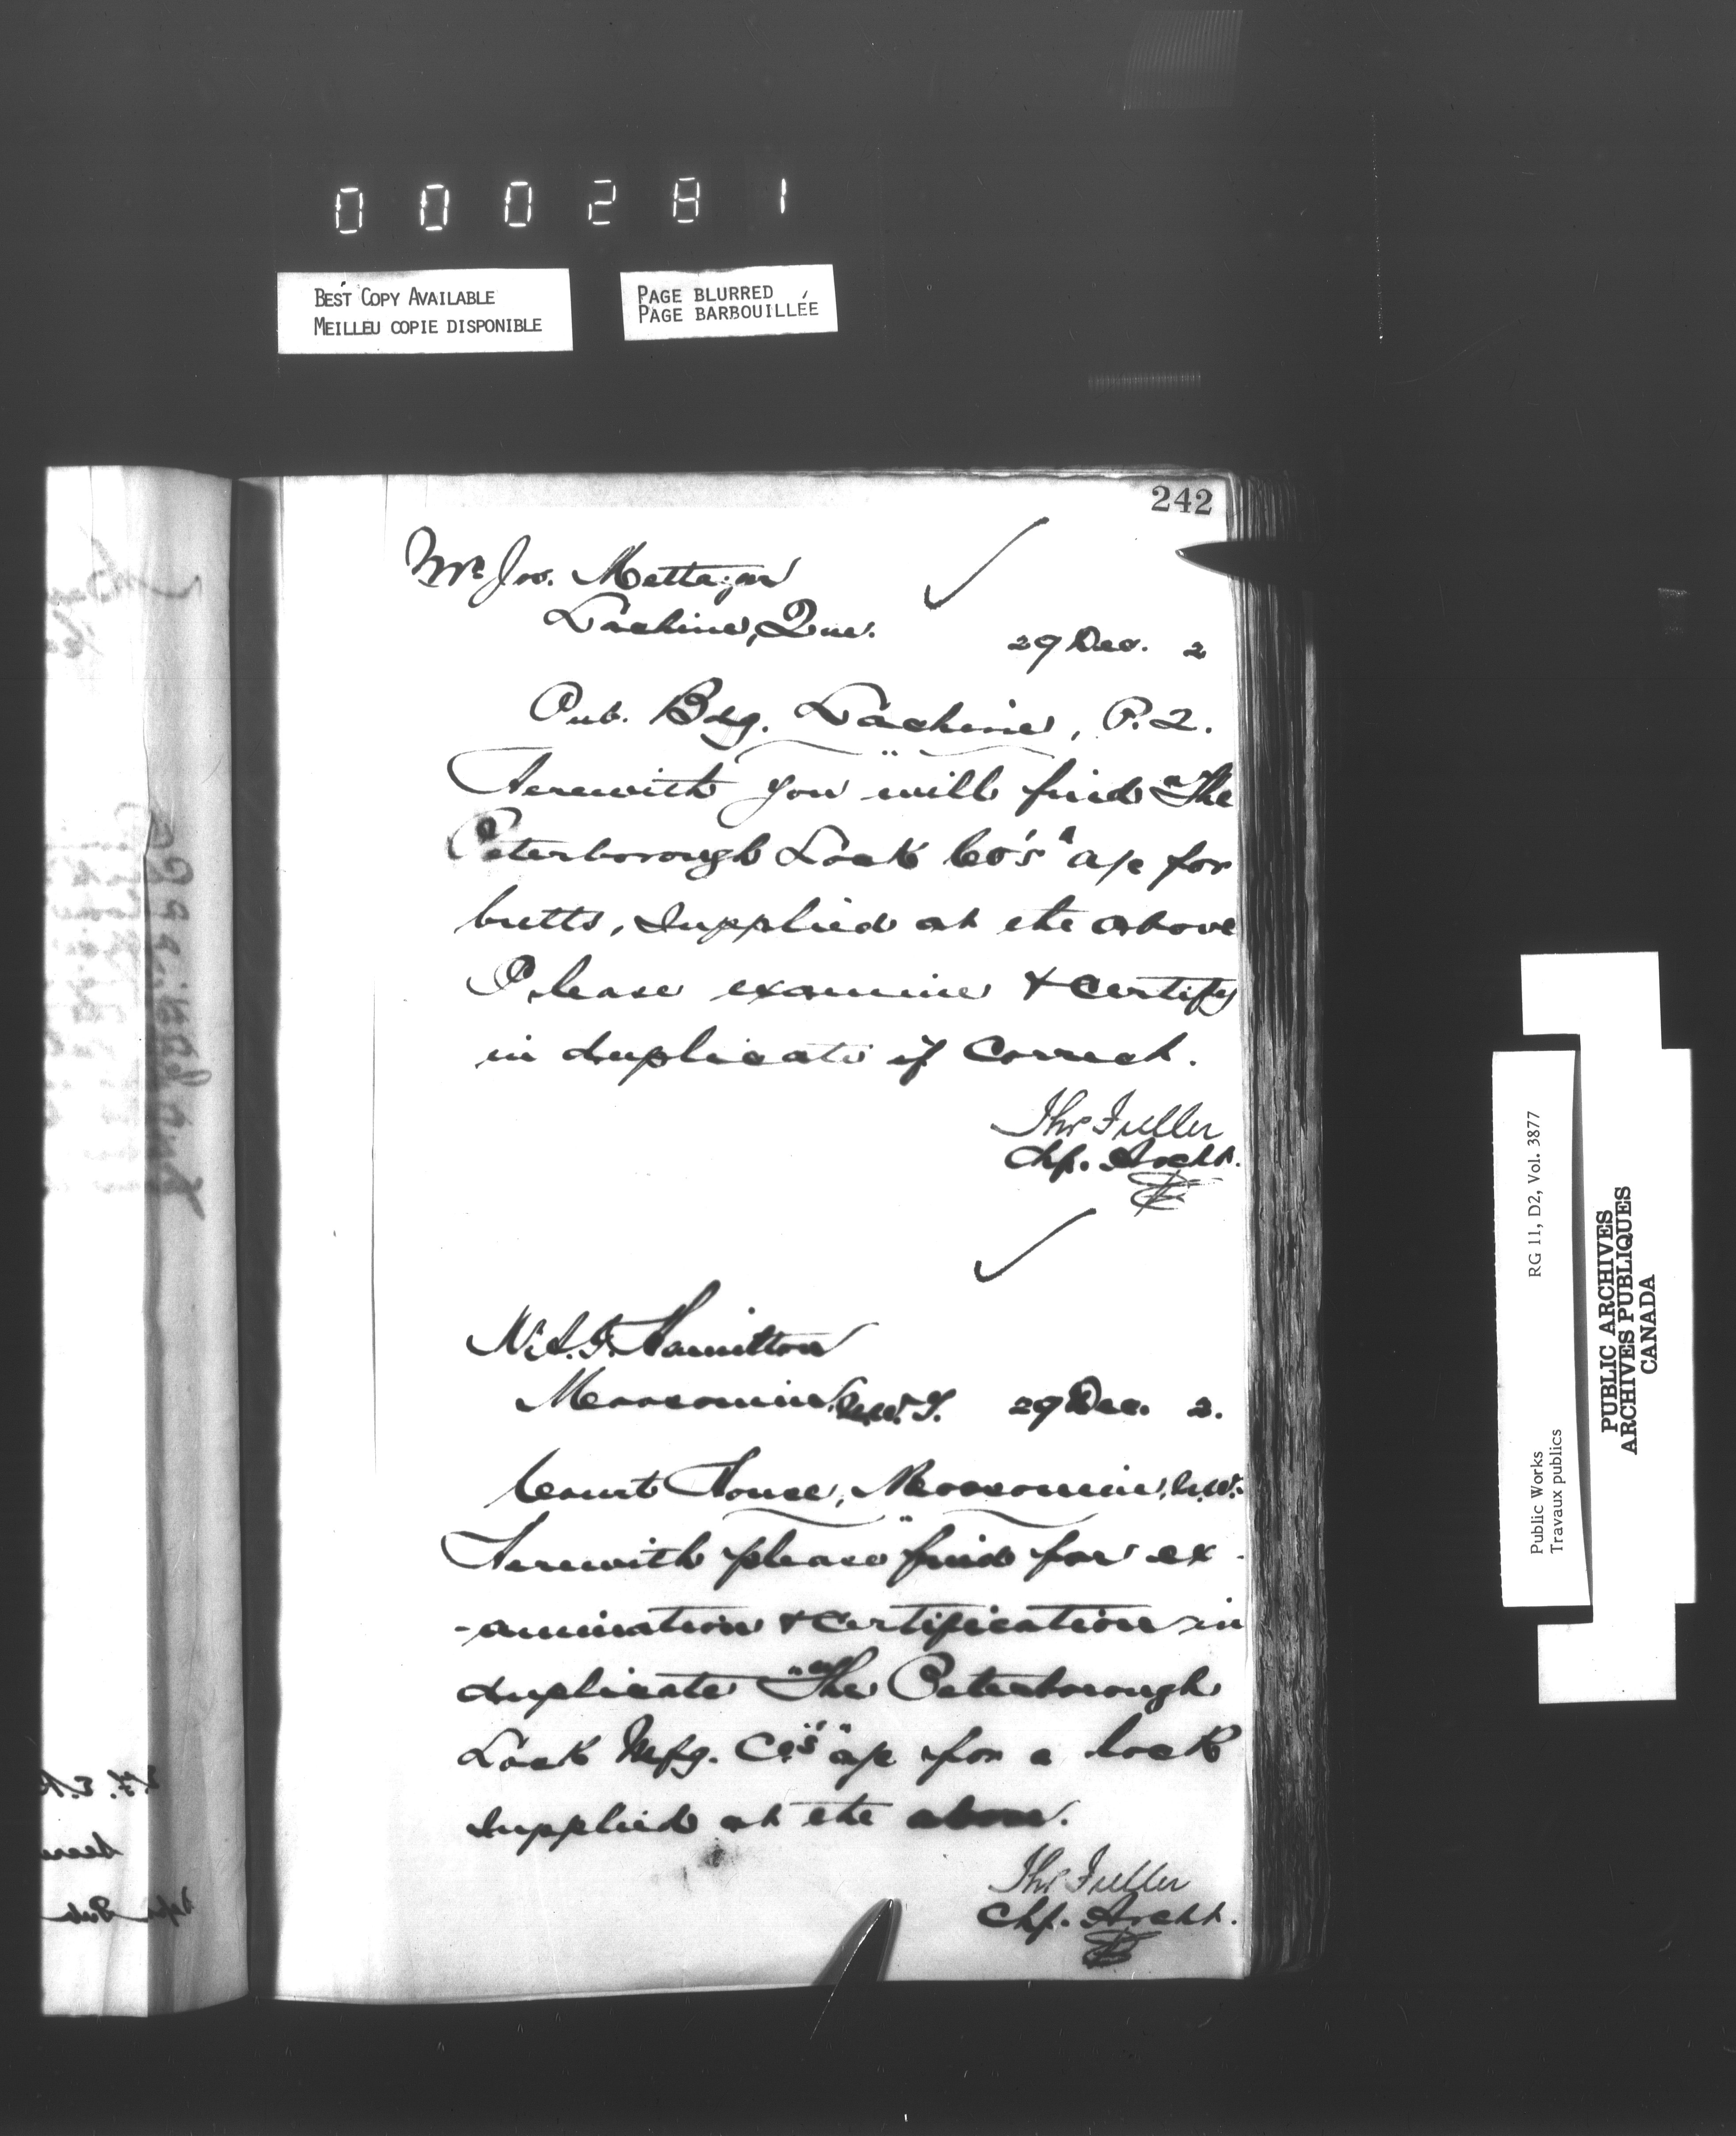 000281
BEST COPY AVAILABLE
MEILLEU COPIE DISPONIBLE
PAGE BLURRED
PAGE BARBOUILLÉE
242
Mr. Jos.
Lachine, Que.
29 Dec. 2
Pub. Bdg. Lachine, P.Q.
Herewith you will find "The
Peterborough Lock Co's" a/c for
butts, supplied at the above
Please examine & certify
in duplicate if correct.
Thos Fuller
Chf. Archt.
A. F. Hamilton
Moosomin, N.W.T. 29 Dec. 2.
Court House, Moosomin, N.W.
Herewith please find for ex-
-amination & certification in
duplicate "The Peterborough
Lock Mfg. Co's" a/c for a lock
supplied at the above.
Thos Fuller
Chf. Archt.
Public Works
Travaux publics
RG 11, D2, Vol. 3877
PUBLIC ARCHIVES
ARCHIVES PUBLIQUES
CANADA